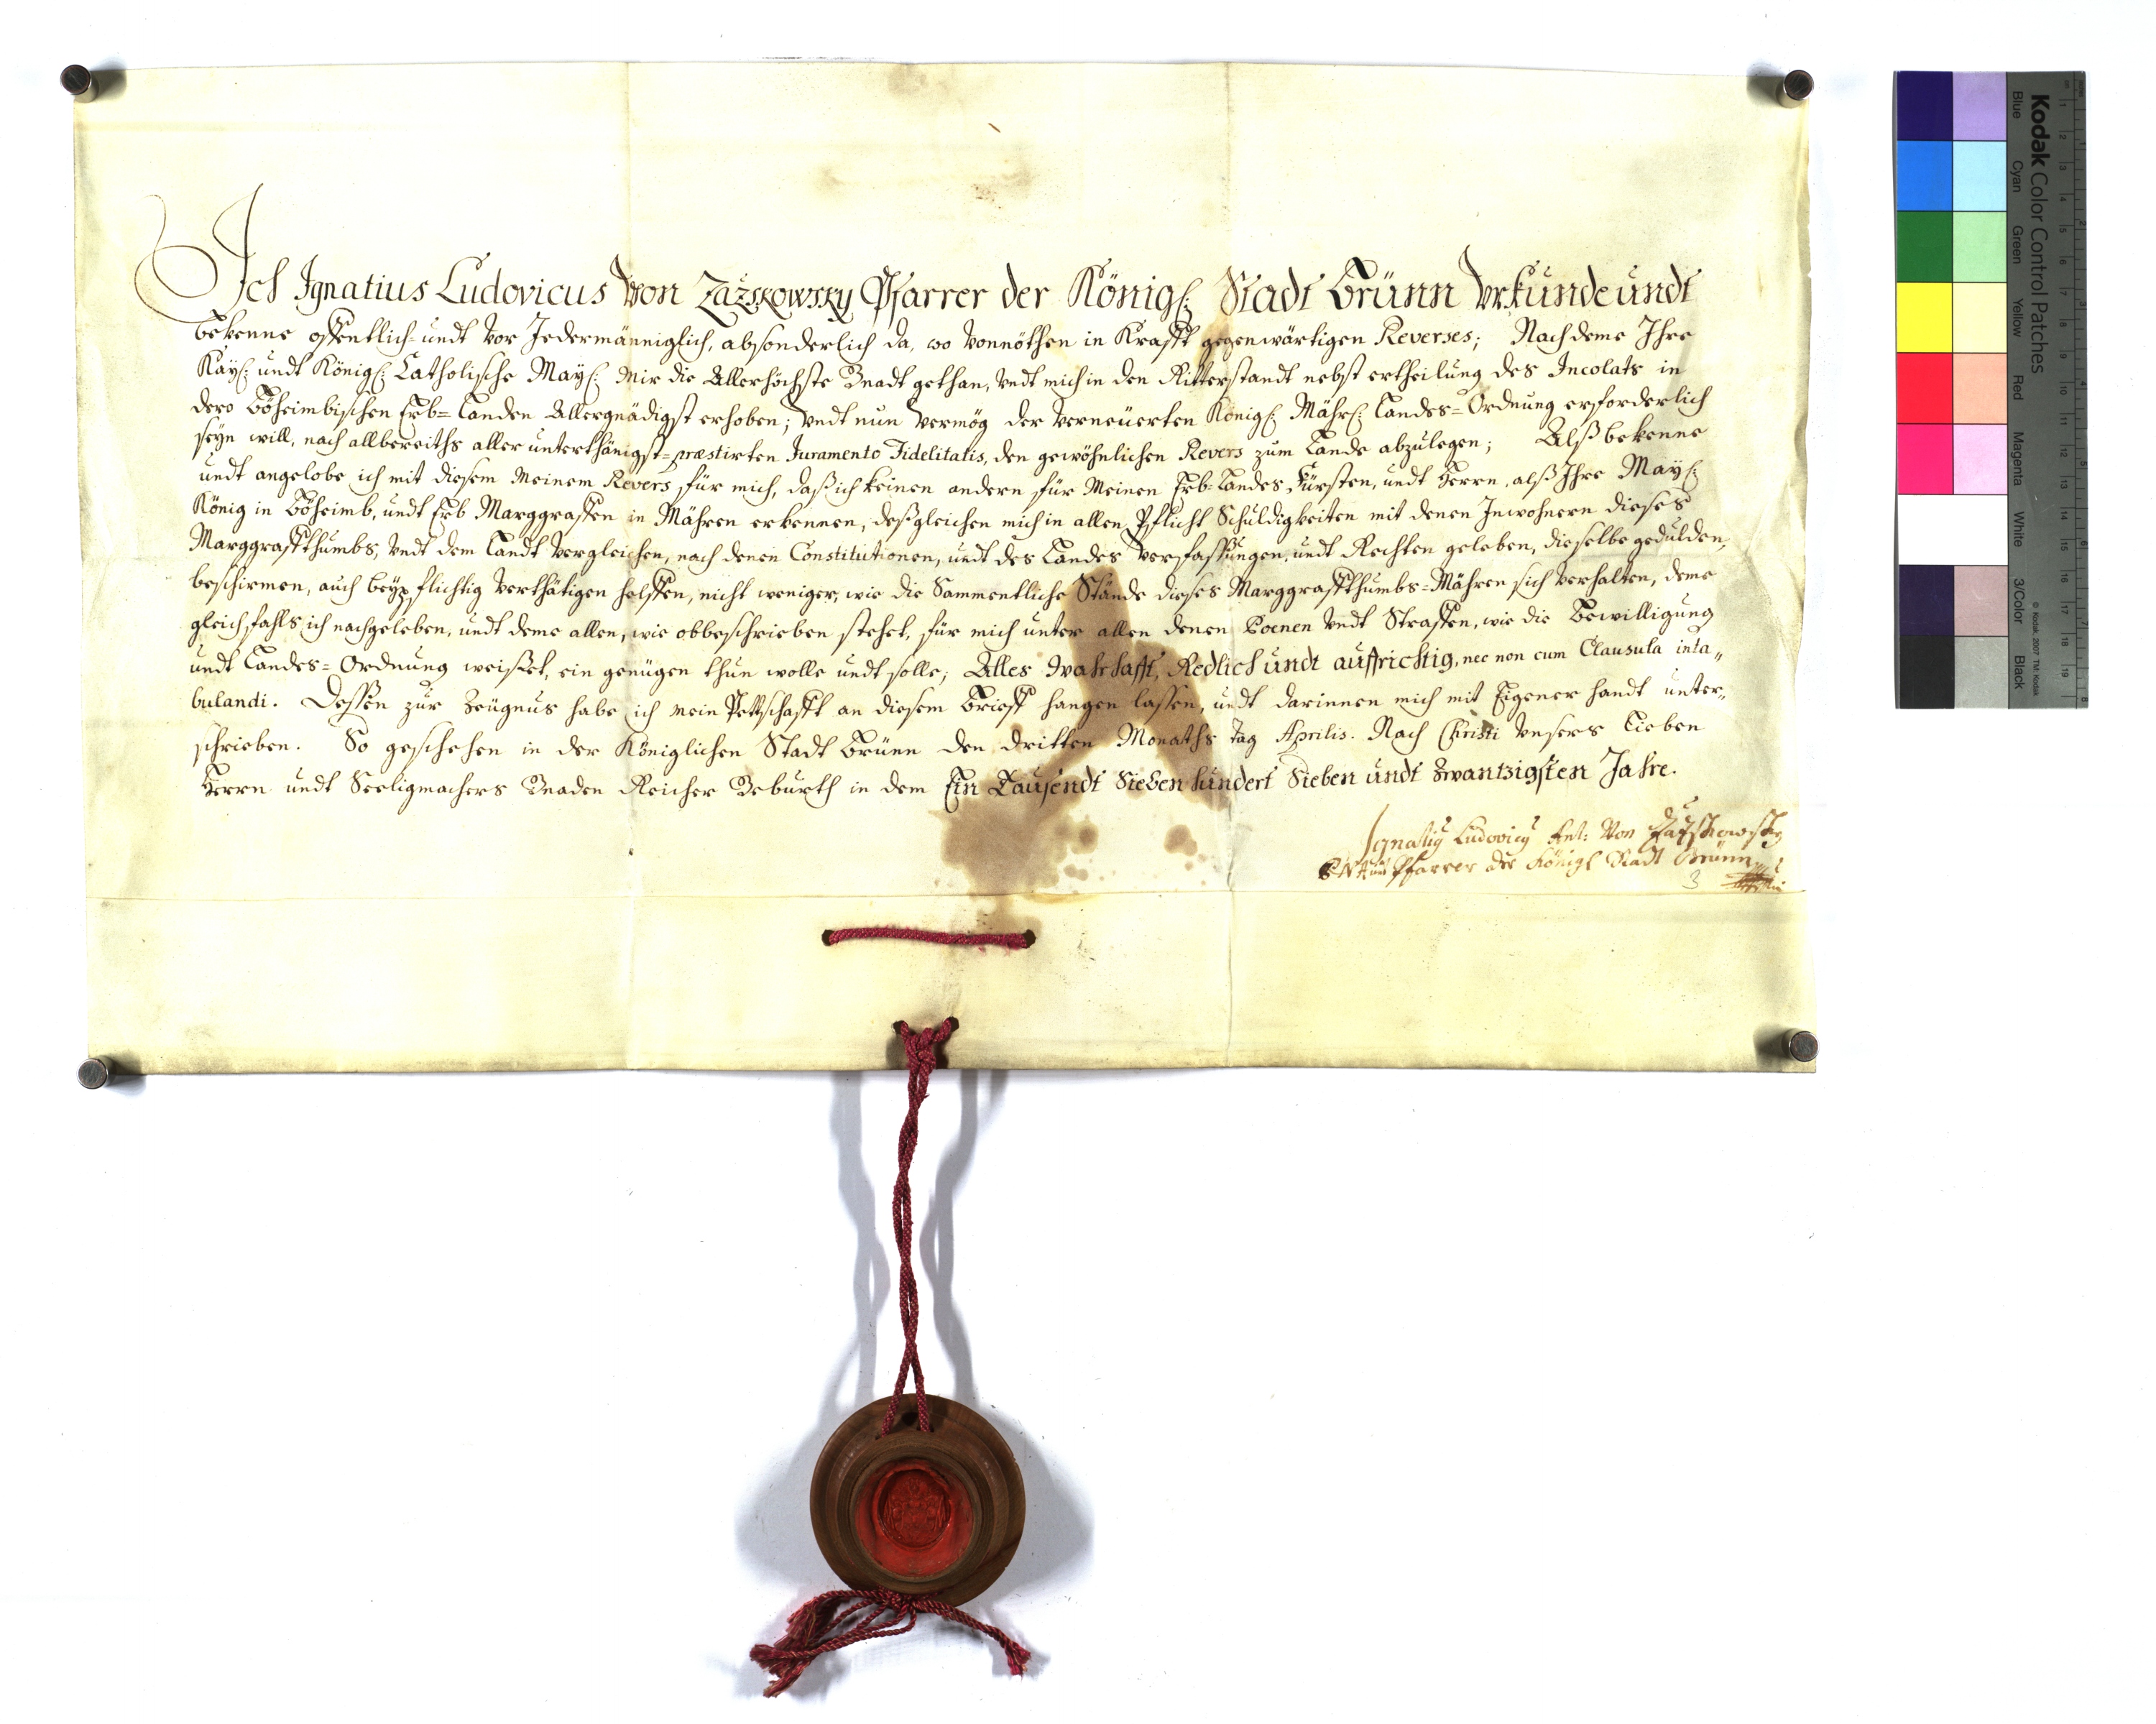 Ich Ignatius Ludovicus Von Zažskowsky Pfarrer der Königl: Stadt Brünn Vrkunde undt
bekenne offentlich- undt vor Jedermänniglich, absonderlich da, wo vonnöthen in Krafft gegenwärtigen Reverses; Nachdeme Ihre
Kayl: undt Königl: Catholische Mayl: Mir die Allerhöchste Gnadt gethan, Vndt mich in den Ritterstandt nebst ertheilung des Incolats in
dero Böheimbischen Erb-Landen Allergnädigst erhoben; Vndt nun Vermög der Verneüerten Königl: Mährl: Landes-Ordnung erforderlich
seyn will, nach allbereiths aller unterthänigst-præstirten Juramento Fidelitatis, den gewöhnlichen Revers zum Lande abzulegen; Alß bekenne
undt angelobe ich mit diesem Meinem Revers für mich, daß ich keinen andern für Meinen Erb-Landes-Fürsten, undt Herrn, alß Ihre Mayl:
König in Böheimb, undt Erb Marggraffen in Mähren erkennen, deßgleichen mich in allen Pflicht Schuldigkeiten mit denen Inwohnern dieses
Marggraffthumbs, Vndt dem Landt Vergleichen, nach denen Constitutionen, undt des Landes Verfassungen, undt Rechten geleben, dieselbe gedulden,
beschirmen, auch beypflichtig Verthätigen helffen, nicht weniger, wie die Sammentliche Stände dieses Marggraffthumbs-Mähren sich Verhalten, deme
gleichfahls ich nachgeleben, undt deme allen, wie obbeschrieben stehet, für mich unter allen denen Poenen Vndt Straffen, wie die Bewilligung
undt Landes-Ordnung weiset, ein genügen thun wolle undt solle; Alles Wahrhafft, Redlich undt auffrichtig, nec non cum Clausula inta„
bulandi. Dessen zur Zeügnus habe ich mein Pettschafft an diesem Brieff hangen lassen, undt darinnen mich mit Eigener handt unter„
schrieben. So geschehen in der Königlichen Stadt Brünn den dritten Monaths Tag Aprilis. Nach Christi Vnsers Lieben
Herrn undt Seeligmachers Gnaden Reicher Geburth in dem Ein Tausendt Sieben hundert Sieben undt Zwantzigsten Jahre.
Ignatius Ludovicus Ant: Von Zažskowsky
Pfarrer der Königl Stadt Brünn
3
Kodak Color Control Patches
© Kodak, 2007 TM: Kodak
Blue Cyan Green Yellow Red Magenta White 3/Color Black
1 2 3 4 5 6 7 8 9 10 11 12 13 14 15 16 17 18 19